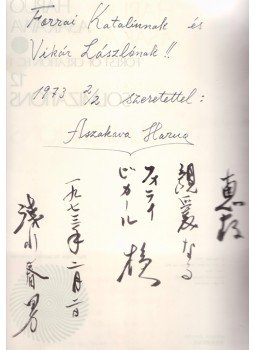 Forrai Katalinnak és
Vikár Lászlónak!!
1973 2/2 szeretettel:
Aszakava Haruo
恵存
親愛なる
フォライ
ビカール 様
一九七三年二月二日
淺川春男